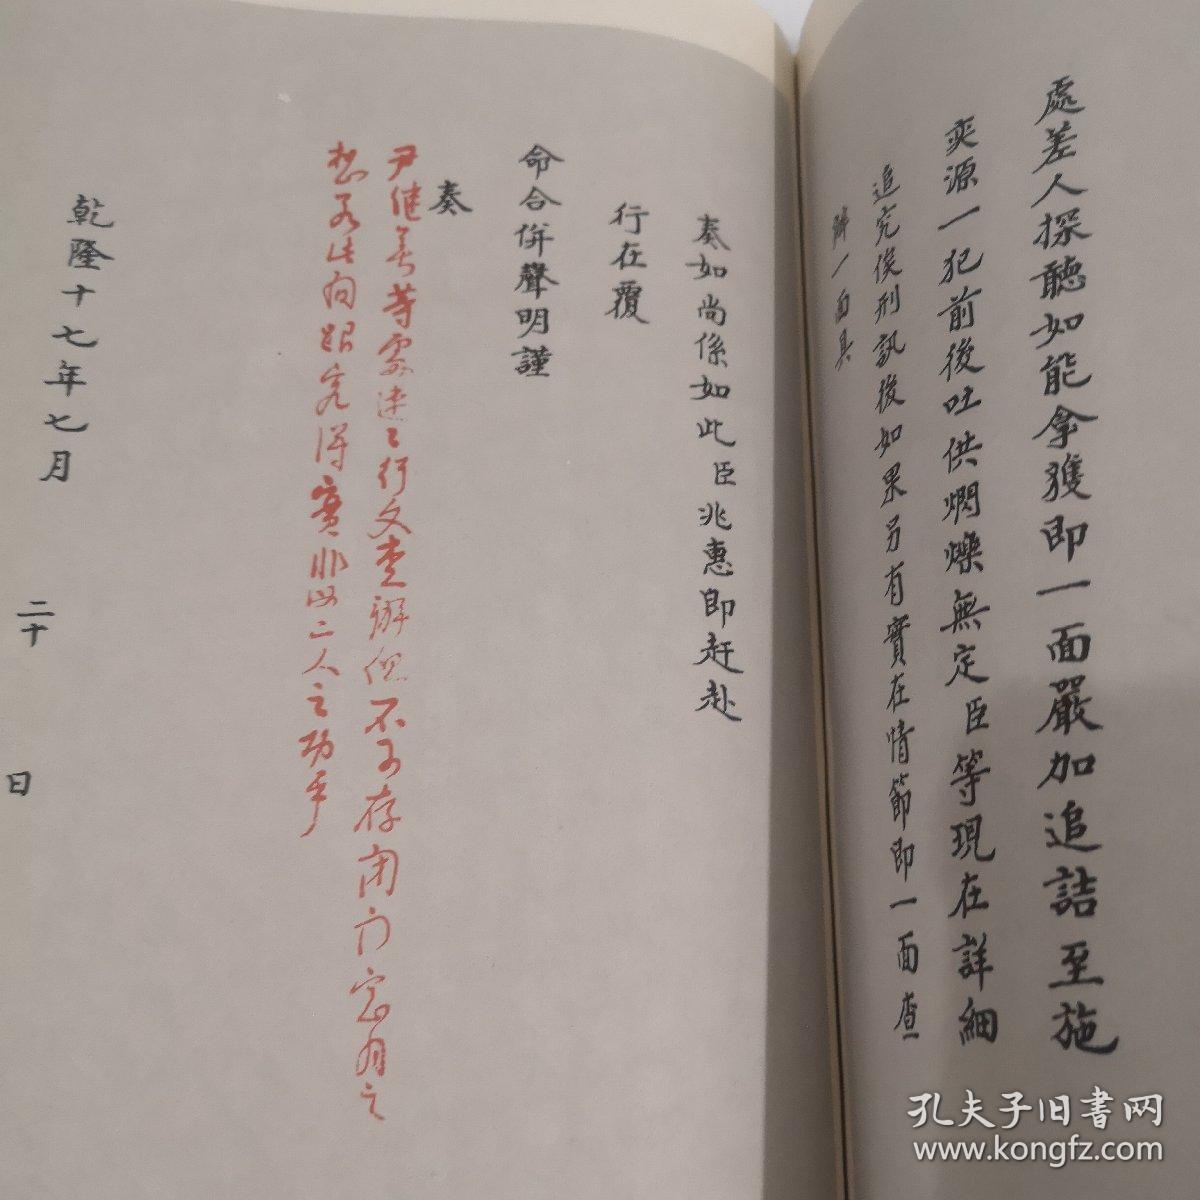 處差人探聽如能拿獲即一面嚴加追詰至施
奕源一犯前後吐供燜爍無定臣等現在詳細
追究俟刑訊後如果另有實在情節即一面查
辦一面具
奏如尚係如此臣兆惠即赶赴
行在覆
命合併聲明謹
奏
尹繼善等處速速行文查辦但不可存閉門
若此向跟究得實非汝二人之功乎
乾隆十七年七月 二十 日
孔夫子旧书网
www.kongfz.com